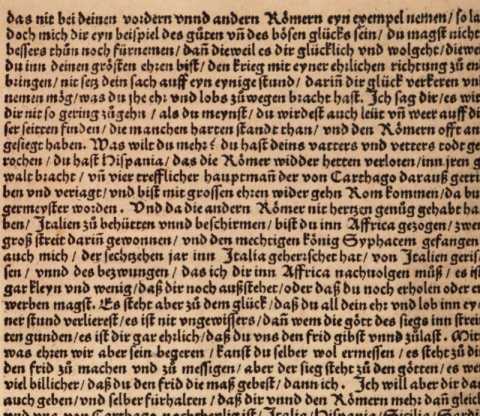 das nit bei deinen vordern vnnd andern Römern eyn exempel nemen/ so la
doch mich dir eyn beispiel des gůten vñ des bösen glücks sein/ du magst nicht
bessers thůn noch fürnemen/ dañ dieweil es dir glücklich vnd wolgeht/diewe
du inn deinen grösten ehren bist/ den krieg mit eyner ehrlichen richtung zů en
bringen/ nit setz dein sach auff eyn eynige stund/ dariñ dir glück verkeren vn
nemen mög/was du jhe ehr vnd lobs zůwegen bracht hast. Ich sag dir/ es wir
dir nit so gering zůgehn/ als du meynst/ du wirdest auch leüt vñ weer auff di
ser seitten finden/ die manchen harten standt than/ vnd den Römern offt an
gesieget haben. Was wilt du mehr? du hast deins vatters vnd vetters todt ge
rochen/ du hast Hispania/ das die Römer widder hetten verloren/inn jren g
walt bracht/ vñ vier trefflicher hauptmañ der von Carthago darauß getri
ben vnd veriagt/ vnd bist mit grossen ehren wider gehn Rom kommen/da bu
germeyster worden. Vnd da die andern Römer nit hertzen genůg gehabt ha
ben/ Italien zů behütten vnnd beschirmen/ bist du inn Affrica gezogen/ zwe
groß streit dariñ gewonnen/ vnd den mechtigen könig Syphacem gefangen
auch mich/ der sechtzehen jar inn Italia geherrschet hat/ von Italien geris
sen/ vnnd des bezwungen/ das ich dir inn Affrica nachuolgen můß/ es is
gar kleyn vnd wenig/daß dir noch außstehet/oder daß du noch erholen oder e
werben magst. Es steht aber zů dem glück/daß du all dein ehr vnd lob inn ey
ner stund verlierest/es ist nit vngewissers/dañ wem die gött des siegs inn strei
ten gunden/es ist dir gar ehrlich/daß du vns den frid gibst vnnd zůlast. Mit
was ehren wir aber sein begeren/ kanst du selber wol ermessen/ es steht zů di
den frid zů machen vnd zů messigen/ aber der sieg steht zů den götten/ es we
viel billicher/ daß du den frid die maß gebest/ dann ich. Ich will aber dir da
auch geben/ vnd selber fürhalten/ daß dir vnnd den Römern mehr dañ gleich